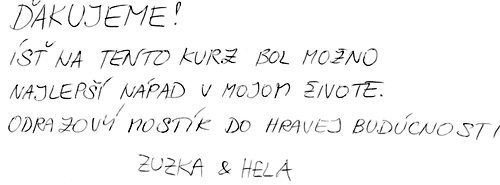 ĎAKUJEME!
ÍSŤ NA TENTO KURZ BOL MOŽNO
NAJLEPŠÍ NÁPAD V MOJOM ŽIVOTE.
ODRAZOVÝ MOSTÍK DO HRAVEJ BUDÚCNOSTI
ZUZKA & HELA